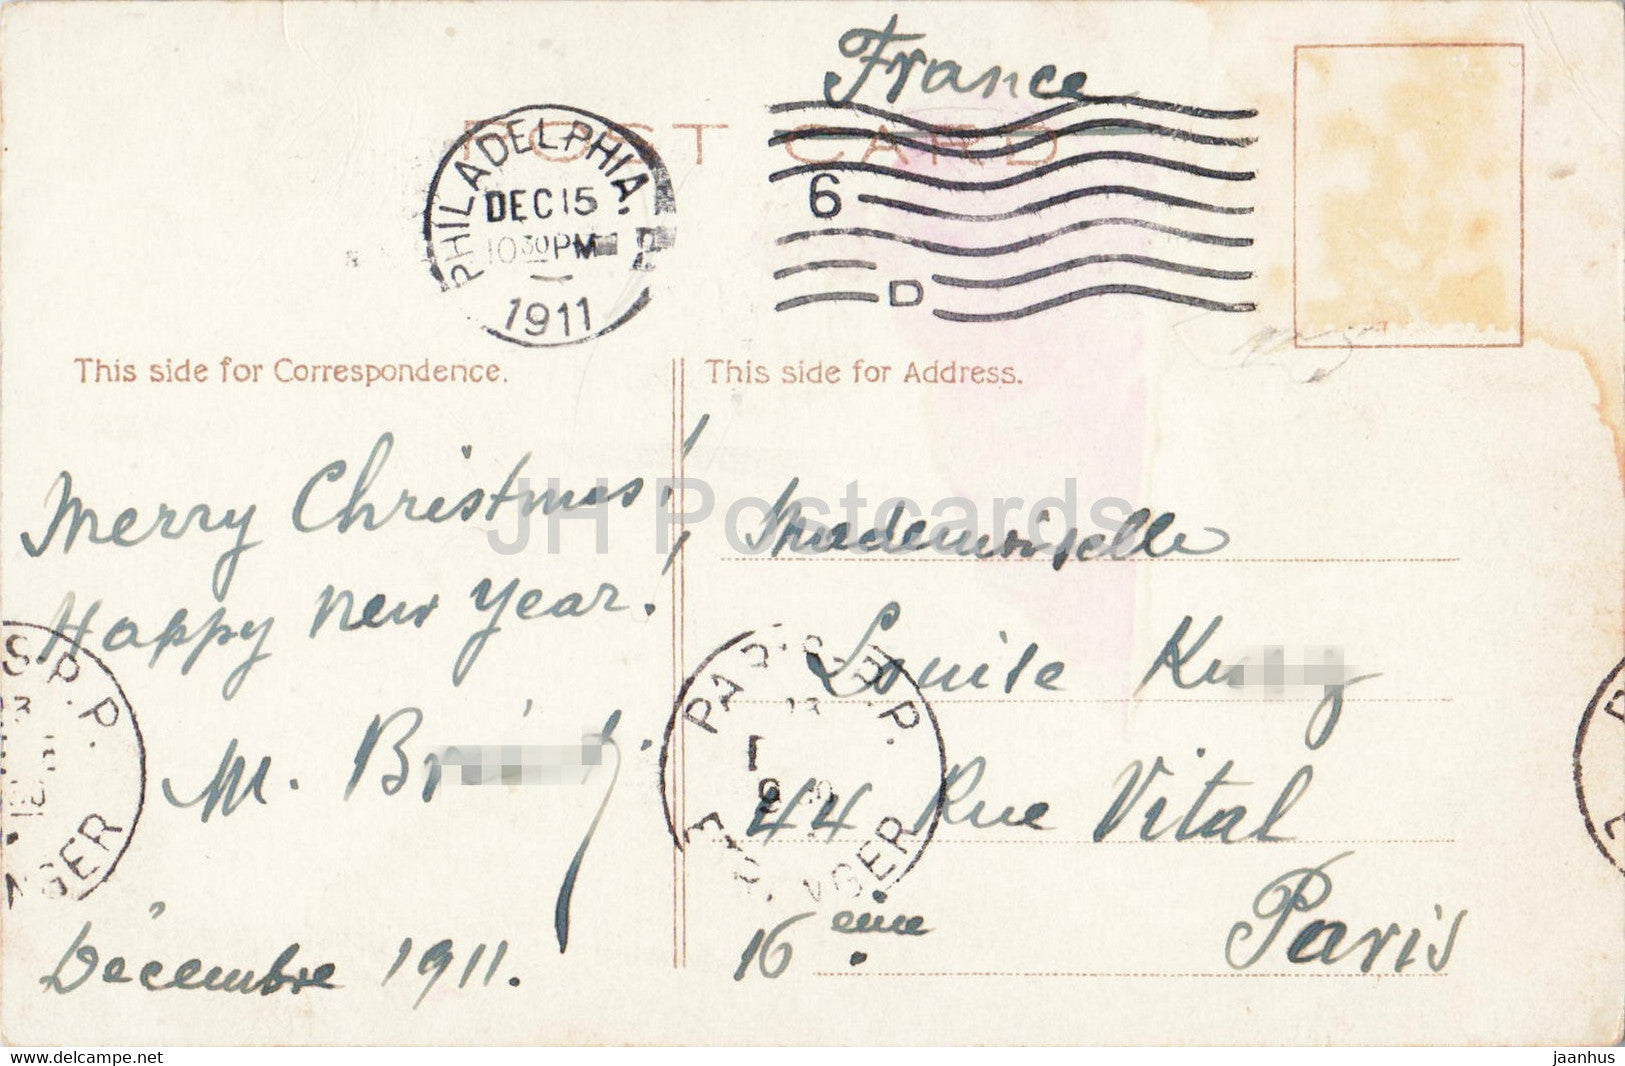 France
POST CARD
PHILADELPHIA. PA
DEC 15
10 30 PM
1911
6
D
This side for Correspondence.
This side for Address.
Merry Christmas!
Happy New Year!
M.
Décembre 1911.
Mademoiselle
Louise
44 Rue Vital
16ème. Paris
PARIS R.P.
ETRANGER
S.R.P.
NGER
JH Postcards
www.delcampe.net
jaanhus